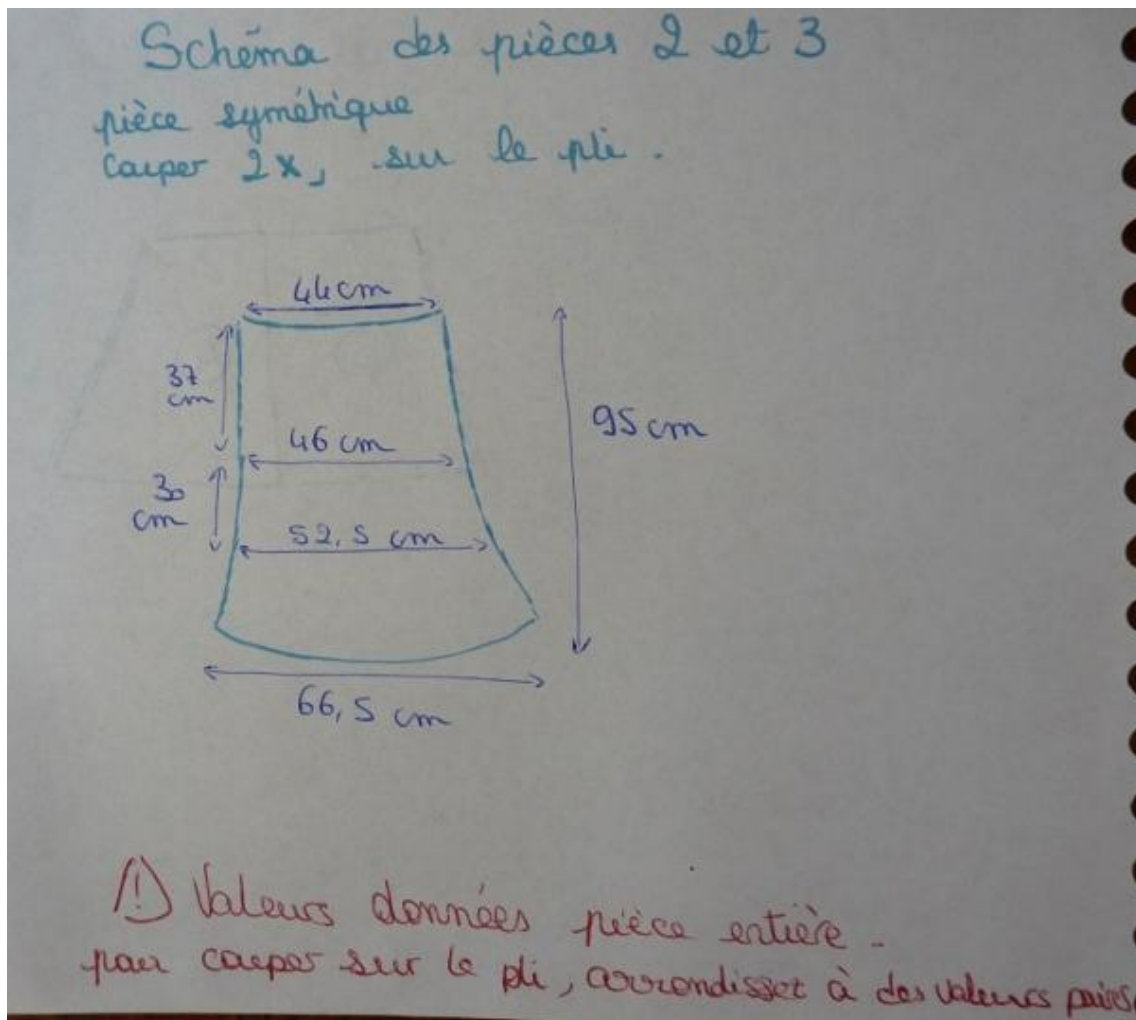 Schéma des pièces 2 et 3
pièce symétrique
Couper 2x, sur le pli.
44 cm
37
cm
46 cm
95 cm
30
cm
52,5 cm
66,5 cm
/!\ Valeurs données pièce entière.
pour couper sur le pli, arrondissez à des valeurs paires.